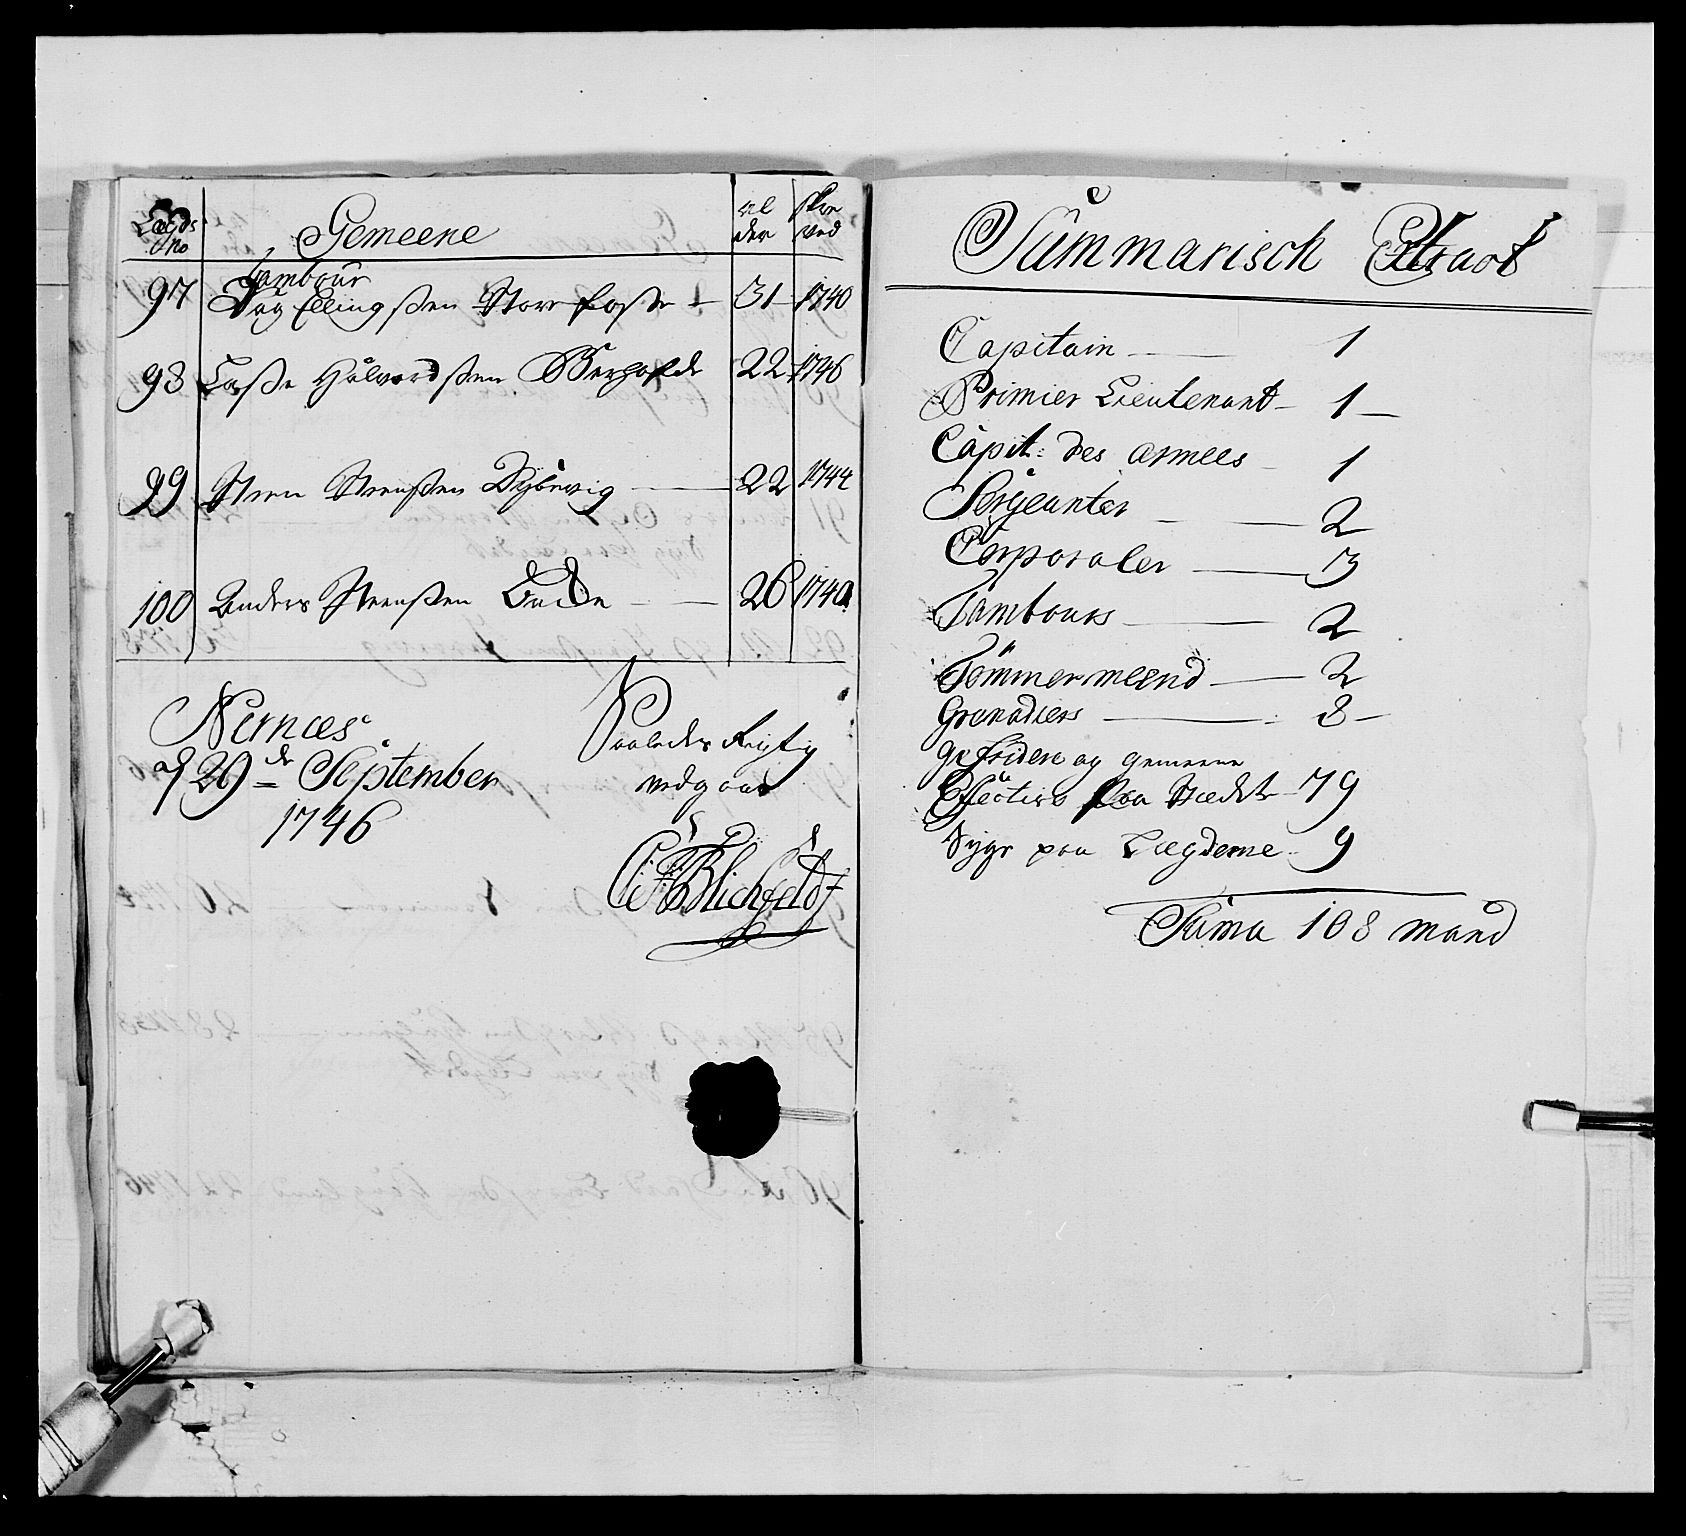 Lægds No
Gemeene
al der
skre ved
97 Tambour
Dag Ellingßen Store 31 1740
98 Laße Halvordßen 22 1746
99 Steen Steenßen Dybevig 22 1744
100 Anders Steenßen 26 1740
Nernæs
d 29de September
1746
Saaledes Rigtig
vedgaar
C:F:Blichfeldt
Summarisch Extract
Capitain 1
Primier Lieutenant 1
Capit: des armees 1
Sergeanter 2
Corporaler 3
Tambours 2
Tömmermænd 2
Grenadiers 8
Gefridere og Gemeene
Effective paa Stædet 79
Syge paa Lægderne 9
Suma 108 mand